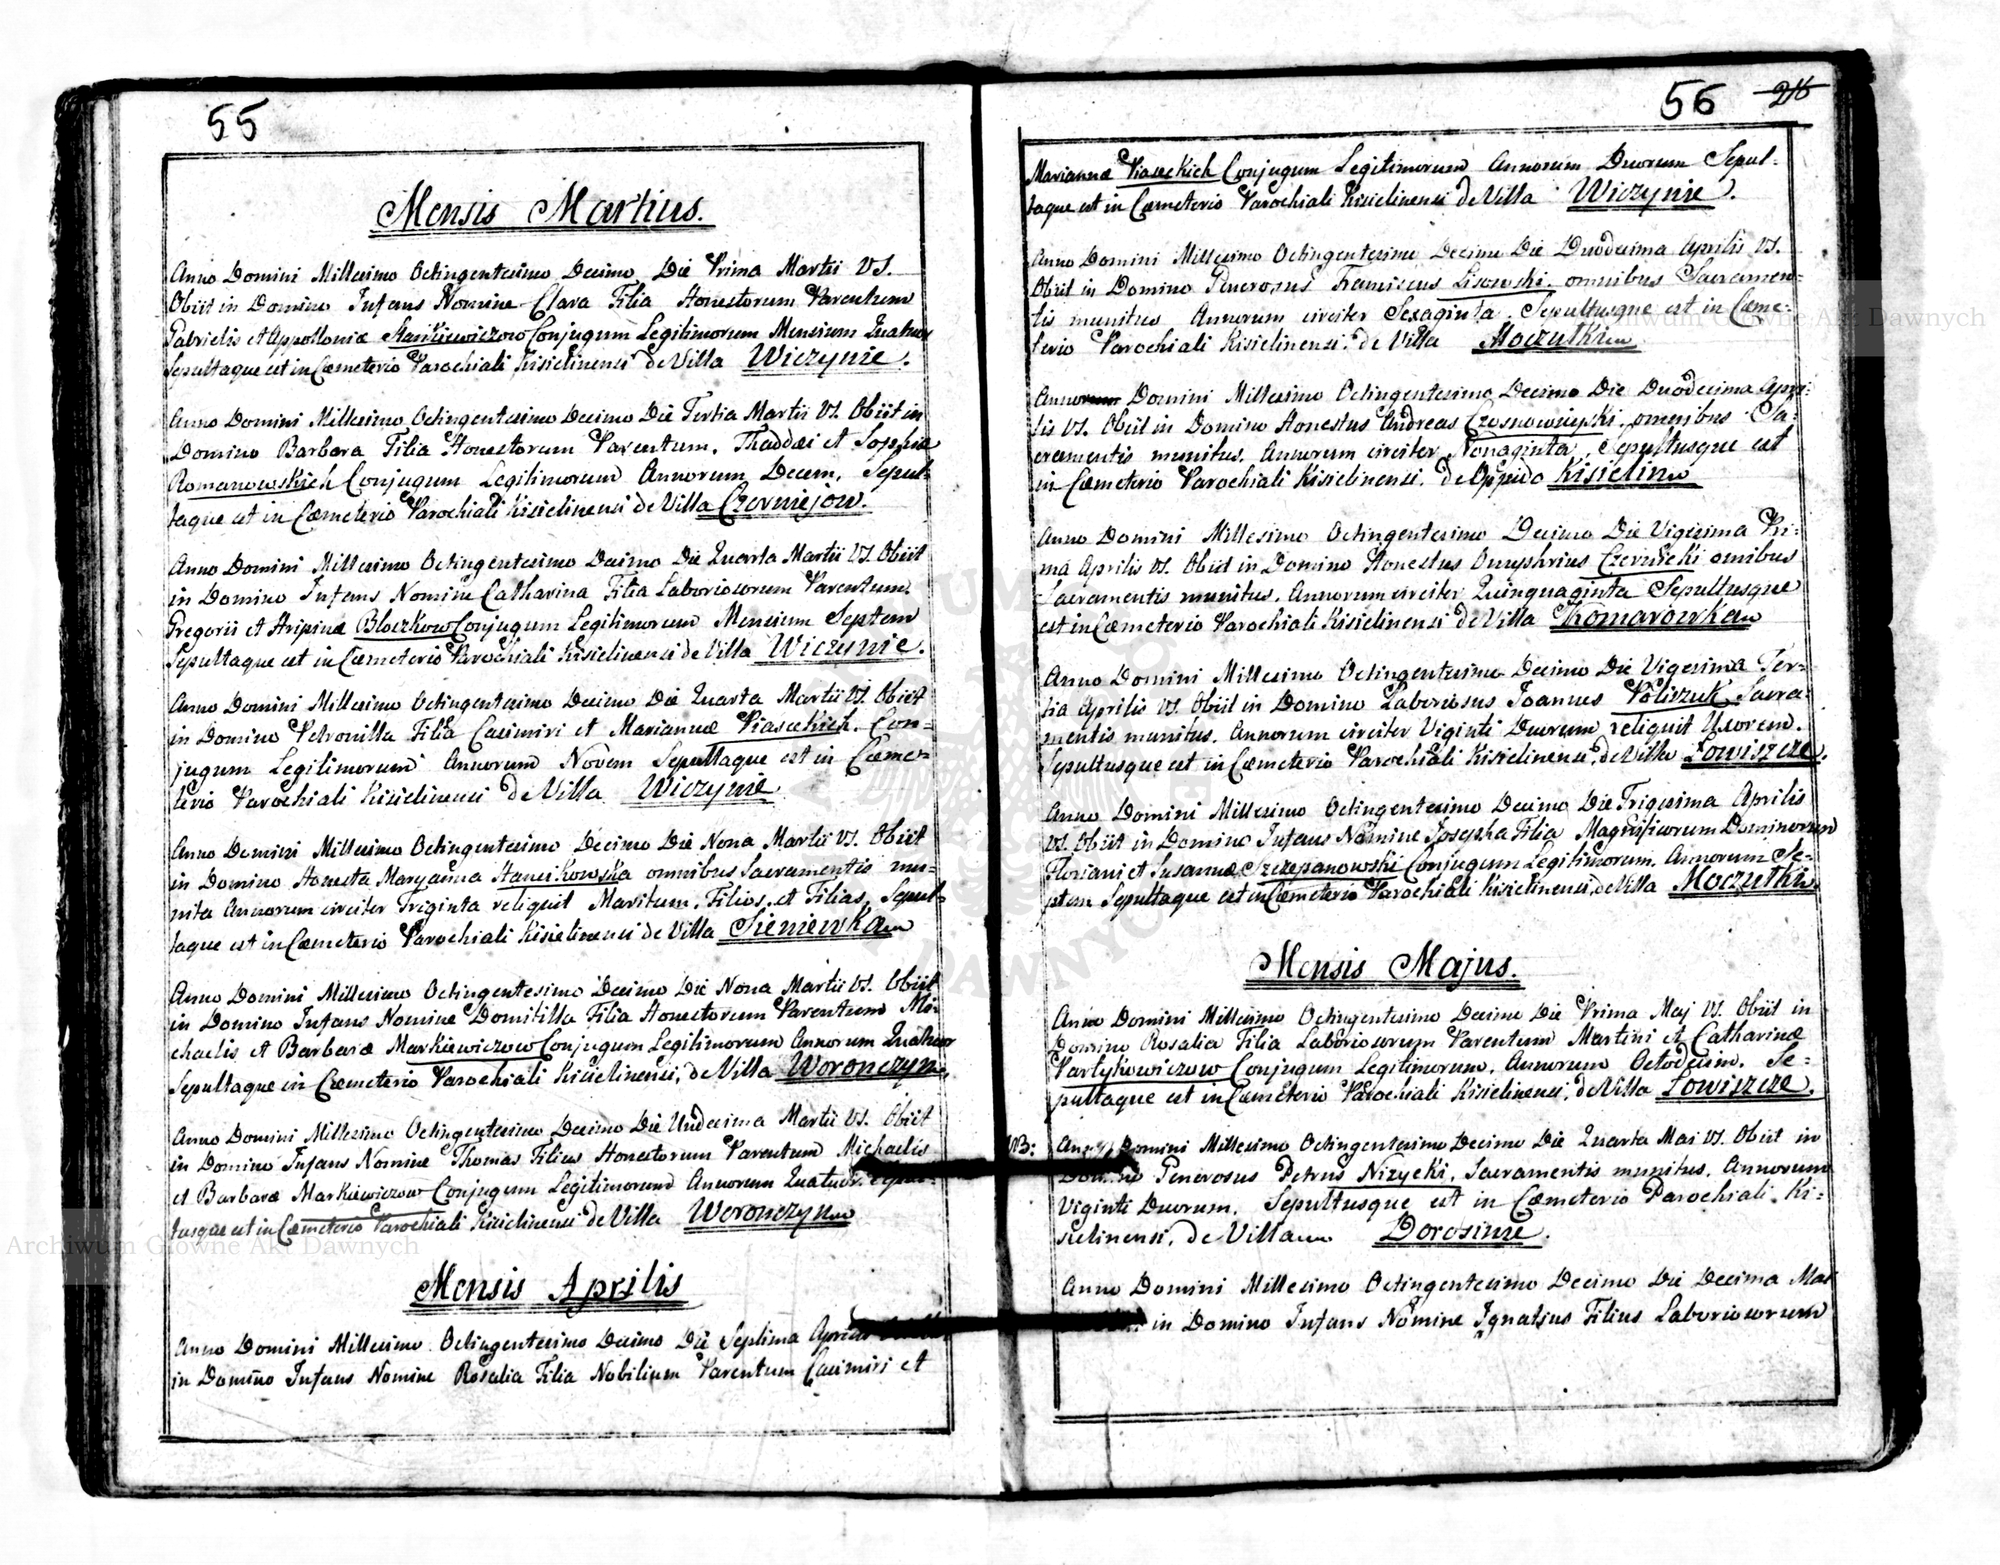 55
Mensis Martius.
Anno Domini Millesimo Octingentesimo Decimo Die Prima Martii VS.
Obiit in Domino Infans Nomine Clara Filia Honestorum Parentum
Gabrielis et Appolloniæ Stankiewiczow Conjugum Legitimorum Mensium Quatuor
Sepultaque est in Cæmeterio Parochiali Kisielinensi de Villa Wiczynie.
Anno Domini Millesimo Octingentesimo Decimo Die Tertia Martii VS. Obiit in
Domino Barbara Filia Honestorum Parentum, Thaddæi et Sophiæ
Romanowskich Conjugum Legitimorum Annorum Decem, Sepul-
taque est in Cæmeterio Parochiali Kisielinensi de Villa Czerniejow.
Anno Domini Millesimo Octingentesimo Decimo Die Quarta Martii VS. Obiit
in Domino Infans Nomine Catharina Filia Laboriosorum Parentum
Gregorii et Aripinæ Bloczkow Conjugum Legitimorum Mensium Septem
Sepultaque est in Cæmeterio Parochiali Kisielinensi de Villa Wiczynie.
Anno Domini Millesimo Octingentesimo Decimo Die Quarta Martii VS. Obiit
in Domino Petronilla Filia Casimiri et Mariannæ Piaseckich Con-
jugum Legitimorum Annorum Novem Sepultaque est in Cæme-
terio Parochiali Kisielinensi de Villa Wiczynie
Anno Domini Millesimo Octingentesimo Decimo Die Nona Martii VS. Obiit
in Domino Honesta Maryanna Stancikowska omnibus Sacramentis mu-
nita Annorum circiter Triginta reliquit Maritum, Filios, et Filias, Sepul-
taque est in Cæmeterio Parochiali Kisielinensi de Villa Sieniewka
Anno Domini Millesimo Octingentesimo Decimo Die Nona Martii VS. Obiit
in Domino Infans Nomine Domitilla Filia Honestorum Parentum Mi-
chaelis et Barbaræ Markiewiczow Conjugum Legitimorum Annorum Quatuor
Sepultaque in Cæmeterio Parochiali Kisielinensi, de Villa Woronczyn.
Anno Domini Millesimo Octingentesimo Decimo Die Undecima Martii VS. Obiit
in Domino Infans Nomine Thomas Filius Honestorum Parentum Michaelis
et Barbaræ Markiewiczow Conjugum Legitimorum Annorum Quatuor
tusque est in Cæmeterio Parochiali Kisielinensi de Villa Woronczyn
Mensis Aprilis
Anno Domini Millesimo Octingentesimo Decimo Die Septima Aprilis
in Domino Infans Nomine Rosalia Filia Nobilium Parentum Casimiri et
56
Mariannæ Piaseckich Conjugum Legitimorum Annorum Duorum Sepul-
taque est in Cæmeterio Parochiali Kisielinensi de Villa Wiczynie.
Anno Domini Millesimo Octingentesimo Decimo Die Duodecima Aprilis VS.
Obiit in Domino Generosus Franciscus Lisowski, omnibus Sacramen-
tis munitus Annorum circiter Sexaginta. Sepultusque est in Cæme-
terio Parochiali Kisielinensi. de Villa Moczulki
Domini Millesimo Octingentesimo Decimo Die Duodecima Apri-
lis VS. Obiit in Domino Honestus Andreas Czosnowiczski, omnibus Sa-
cramentis munitus. Annorum circiter Nonaginta, Sepultusque est
in Cæmeterio Parochiali Kisielinensi. de Oppido Kisielin
Anno Domini Millesimo Octingentesimo Decimo Die Vigesima Pri-
ma Aprilis VS. Obiit in Domino Honestus Onuphrius Czernicki omnibus
Sacramentis munitus. Annorum circiter Quinquaginta Sepultusque
est in Cæmeterio Parochiali Kisielinensi de Villa Komarowka
Anno Domini Millesimo Octingentesimo Decimo Die Vigesima Ter-
tia Aprilis VS. Obiit in Domino Laboriosus Joannes Poliszuk Sacra-
mentis munitus. Annorum circiter Viginti Duorum reliquit Uxorem.
Sepultusque est in Cæmeterio Parochiali Kisielinensi, de Villa Lowiszcze.
Anno Domini Millesimo Octingentesimo Decimo Die Trigesima Aprilis
VS. Obiit in Domino Infans Nomine Josepha Filia Magnificorum Dominorum
Floriani et Susannæ Szczepanowski Conjugum Legitimorum. Annorum Se-
ptem Sepultaque est in Cæmeterio Parochiali Kisielinensi, de Villa Moczulki.
Mensis Majus.
Anno Domini Millesimo Octingentesimo Decimo Die Prima Maj VS. Obiit in
Domino Rosalia Filia Laboriosorum Parentum Martini et Catharinæ
Partykowiczow Conjugum Legitimorum, Annorum Octodecim. Se-
pultaque est in Cæmeterio Parochiali Kisielinensi, de Villa Lowiszcze.
NB: Anno Domini Millesimo Octingentesimo Decimo Die Quarta Mai VS. Obiit in
Domino Generosus Petrus Nizycki, Sacramentis munitus, Annorum
Viginti Duorum, Sepultusque est in Cæmeterio Parochiali Ki-
sielinensi, de Villa Dorosinie.
Anno Domini Millesimo Octingentesimo Decimo Die Decima Mai
in Domino Infans Nomine Ignatius Filius Laboriosorum
Archiwum Główne Akt Dawnych
Archiwum Główne Akt Dawnych